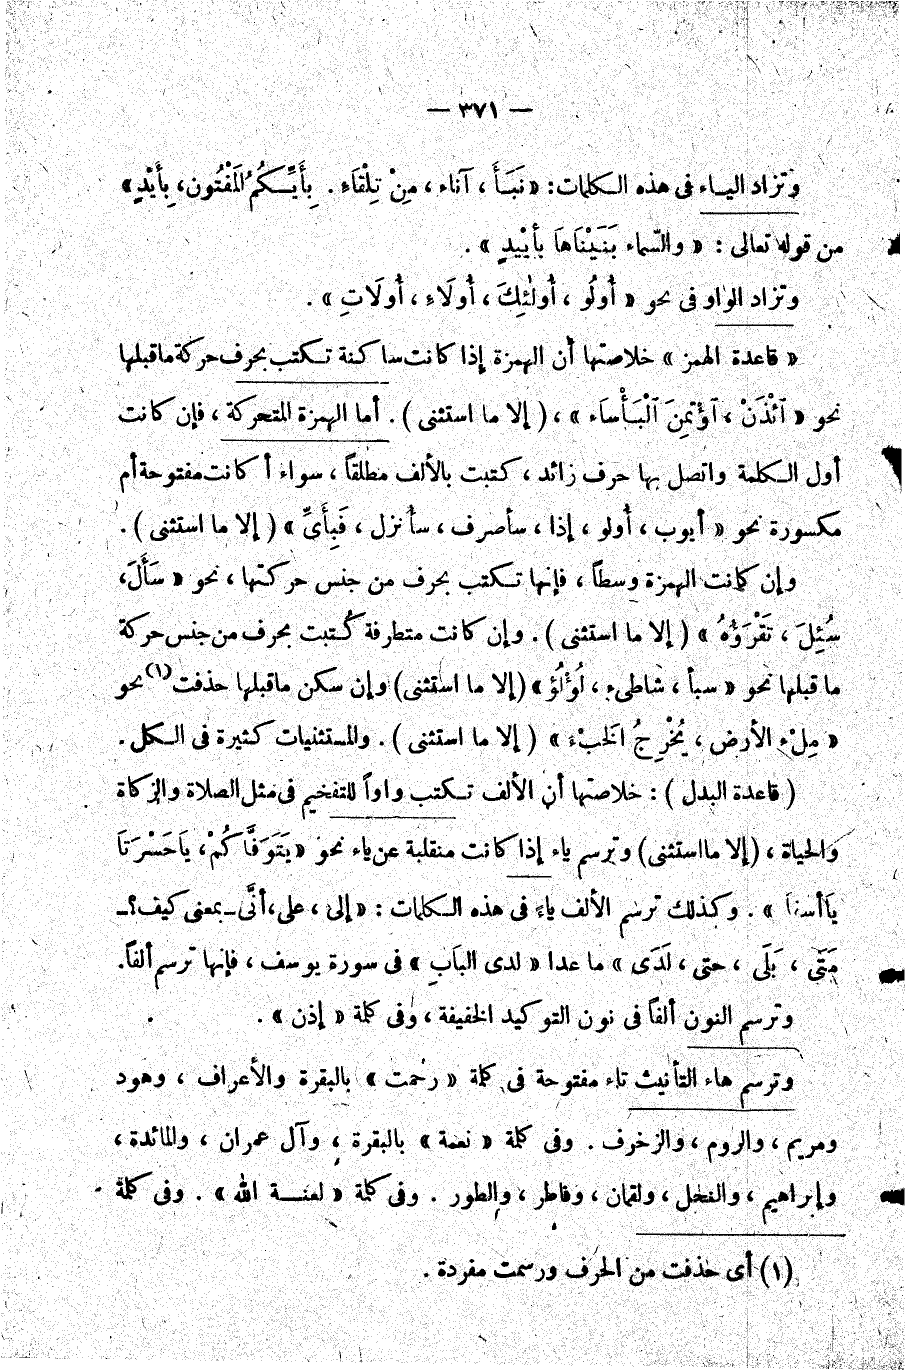 — ٣٧١ —
وتزاد اليـاء فى هذه الـكلمات: «نَبَـأَ ، آناء ، مِنْ تِلْقَاءِ . بِأَيِّـكُمُ المَفْتُون، بِأَيْدٍ»
من قوله تعالى : « والسّماء بَنَيْنَاهَا بأَيْيدٍ » .
وتزاد الواو فى نحو « أُولُو ، أُولَٰئِكَ ، أُولَاءِ ، أُولَاتِ » .
« قاعدة الهمز » خلاصتها أن الهمزة إذا كانت ساكنة تـكتب بحرف حركة ماقبلها
نحو « ٱئْذَنْ ، ٱؤْتُمِنَ ٱلْبَـأْسَاء » ، ( إلا ما استثنى ) . أما الهمزة المتحركة ، فإن كانت
أول الـكلمة واتصل بها حرف زائد ، كتبت بالألف مطلقاً ، سواء أ كانت مفتوحة أم
مكسورة نحو « أيوب ، أُولو ، إذا ، سأصرف ، سأنزل ، فَبِأَىِّ » ( إلا ما استثنى ) .
وإن كانت الهمزة وسطاً ، فإنها تـكتب بحرف من جنس حركتها ، نحو « سَأَلَ،
سُئِلَ ، تَقْرَؤُهُ » ( إلا ما استثنى ) . وإن كانت متطرفة كُتبت بحرف من جنس حركة
ما قبلها نحو « سبأ ، شاطىء ، لُؤْلُؤ » (إلا ما استثنى) وإن سكن ماقبلها حذفت(١) نحو
« مِلْء الأرض ، يُخْرِجُ الخَبْءَ » ( إلا ما استثنى ) . والمستثنيات كثيرة فى الـكل .
( قاعدة البدل ) : خلاصتها أن الألف تـكتب واواً للتفخيم فى مثل الصلاة والزكاة
والحياة ، (إلا مااستثنى) وترسم ياء إذا كانت منقلبة عن ياء نحو «يَتَوَفَّاكُمْ، يَاحَسْرَتَا
يَاأسفا » . وكذلك ترسم الألف ياء فى هذه الـكلمات : «إلى ، على ، أنَّى ـ بمعنى كيف؟ـ
مَتَى ، بَلَى ، حتى ، لَدَى » ما عدا « لدى البَاب » فى سورة يوسف ، فإنها ترسم ألفاً.
وترسم النون ألفاً فى نون التوكيد الخفيفة ، وفى كلمة « إذن » .
وترسم هاء التأنيث تاء مفتوحة فى كلمة « رحمت » بالبقرة والأعراف ، وهود
ومريم ، والروم ، والزخرف . وفى كلمة « نعمة » بالبقرة ، وآل عمران ، والمائدة ،
وإبراهيم ، والنحل ، ولقمان ، وفاطر ، والطور . وفى كلمة « لعنـــة الله » . وفى كلمة
(١) أى حذفت من الحرف ورسمت مفردة .